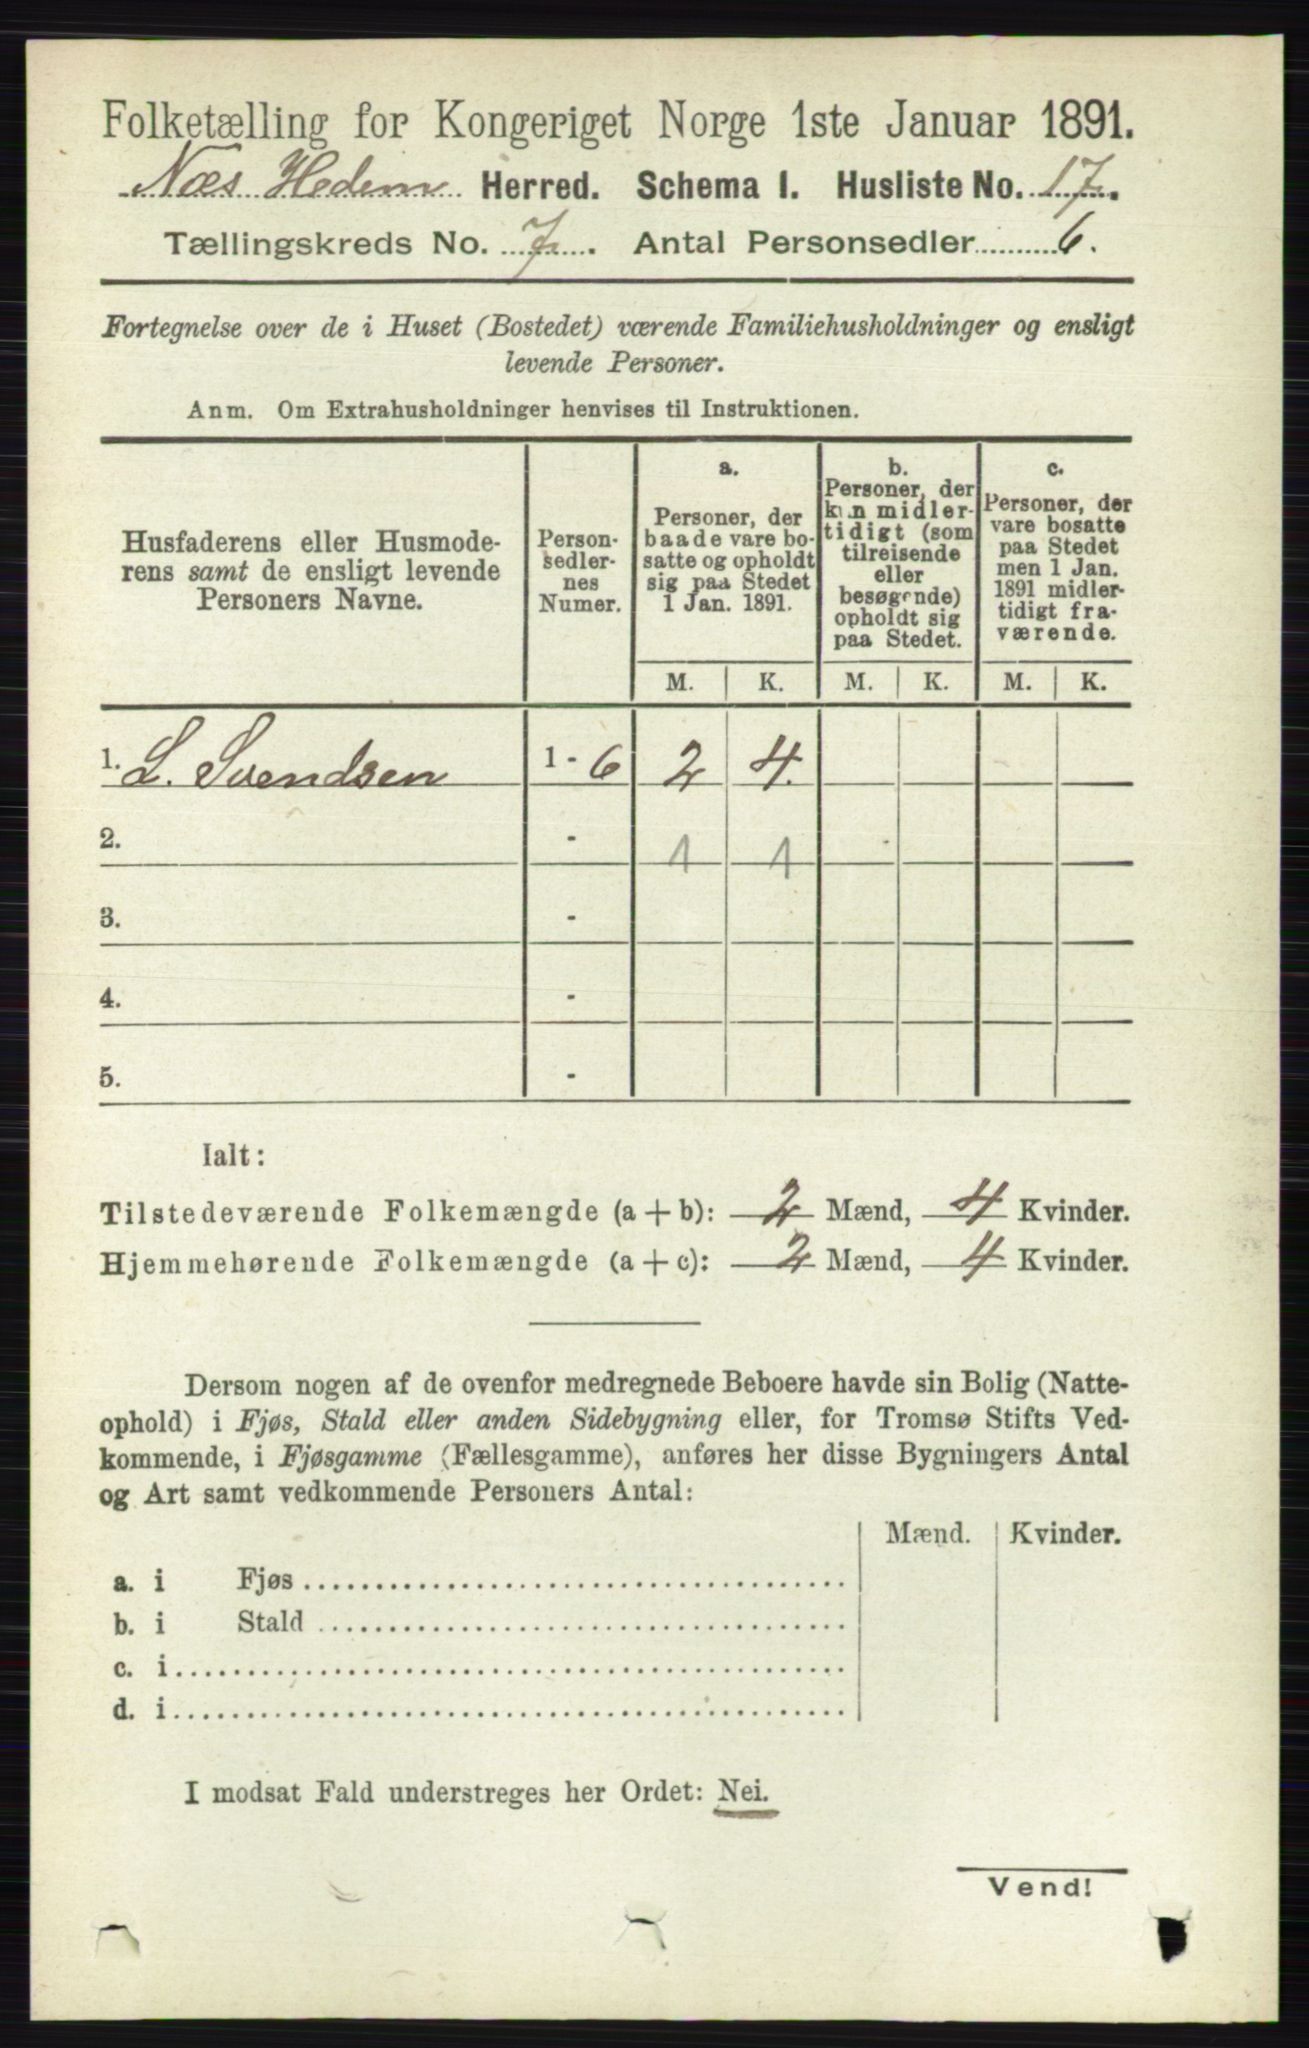 Folketælling for Kongeriget Norge 1ste Januar 1891.
Næs Hedem Herred. Schema 1. Husliste No. 17.
Tællingskreds No. 7. Antal Personsedler 6.
Fortegnelse over de i Huset (Bostedet) værende Familiehusholdninger og ensligt
levende Personer.
Anm. Om Extrahusholdninger henvises til Instruktionen.
Husfaderens eller Husmode-
rens samt de ensligt levende
Personers Navne.
Person-
sedler-
nes
Numer.
a.
Personer, der
baade vare bo-
satte og opholdt
sig paa Stedet
1 Jan. 1891.
b.
Personer, der
kun midler-
tidigt (som
tilreisende
eller
besøgende)
opholdt sig
paa Stedet.
c.
Personer, der
vare bosatte
paa Stedet
men 1 Jan.
1891 midler-
tidigt fra-
værende.
M. K. M. K. M. K.
1. L. Svendsen 1 - 6 2 4.
2. - 1 1
3. -
4. -
5. -
Ialt:
Tilstedeværende Folkemængde (a + b): 2 Mænd, 4 Kvinder.
Hjemmehørende Folkemængde (a + c): 2 Mænd, 4 Kvinder.
Dersom nogen af de ovenfor medregnede Beboere havde sin Bolig (Natte-
ophold) i Fjøs, Stald eller anden Sidebygning eller, for Tromsø Stifts Ved-
kommende, i Fjøsgamme (Fællesgamme), anføres her disse Bygningers Antal
og Art samt vedkommende Personers Antal:
Mænd. Kvinder.
a. i Fjøs
b. i Stald
c. i
d. i
I modsat Fald understreges her Ordet: Nei.
Vend!